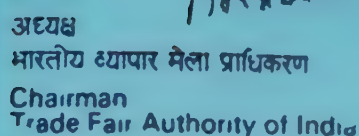 अध्यक्ष
भारतीय व्यापार मेला प्राधिकरण
Chairman
Trade Fair Authority of India